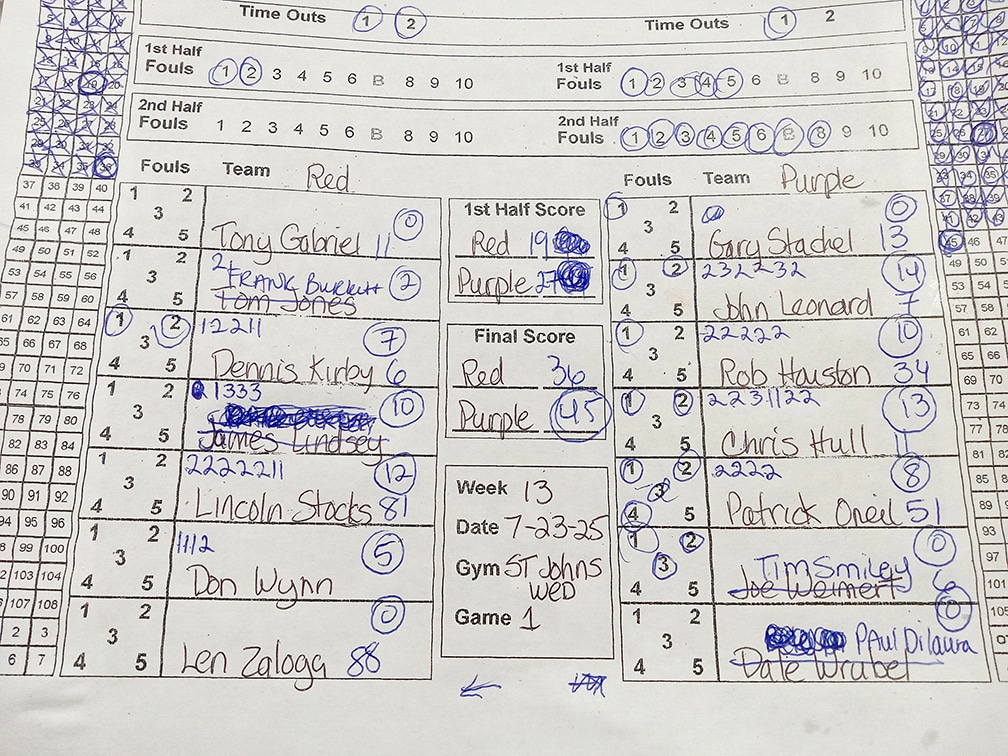 Time Outs 1 2
Time Outs 1 2
1st Half
Fouls 1 2 3 4 5 6 B 8 9 10
1st Half
Fouls 1 2 3 4 5 6 B 8 9 10
2nd Half
Fouls 1 2 3 4 5 6 B 8 9 10
2nd Half
Fouls 1 2 3 4 5 6 B 8 9 10
Fouls Team Red
1 2
3
4 5
0
Tony Gabriel 11
1 2
3
4 5
2
FRANK BURKETT 2
Tom Jones
1 2
3
4 5
12211
7
Dennis Kirby 6
1 2
3
4 5
1333
10
James Lindsey
1 2
3
4 5
2222211
12
Lincoln Stocks 81
1 2
3
4 5
1112
5
Don Wynn
1 2
3
4 5
0
Len Zaloga 88
1st Half Score
Red 19
Purple 27
Final Score
Red 36
Purple 45
Week 13
Date 7-23-25
Gym ST Johns
WED
Game 1
Fouls Team Purple
1 2
3
4 5
0
Gary Stachel 13
1 2
3
4 5
232232
14
John Leonard 7
1 2
3
4 5
22222
10
Rob Houston 34
1 2
3
4 5
2231122
13
Chris Hull 11
1 2
3
4 5
2222
8
Patrick Oneil 51
1 2
3
4 5
0
Tim Smiley
Joe Weimert 6
1 2
3
4 5
0
PAul Dilaura
Dale Wrubel
37 38 39 40
41 42 43 44
45 46 47 48
49 50 51 52
53 54 55 56
57 58 59 60
61 62 63 64
65 66 67 68
69 70 71 72
74 75 76
78 79 80
82 83 84
86 87 88
90 91 92
94 95 96
98 99 100
103 104
107 108
2 3
6 7
45 46 47
49 50 51
53 54 55
57 58 59
61 62
65 66
69 70
73 74
77 78
81 82
85 86
89
93
97
101
105